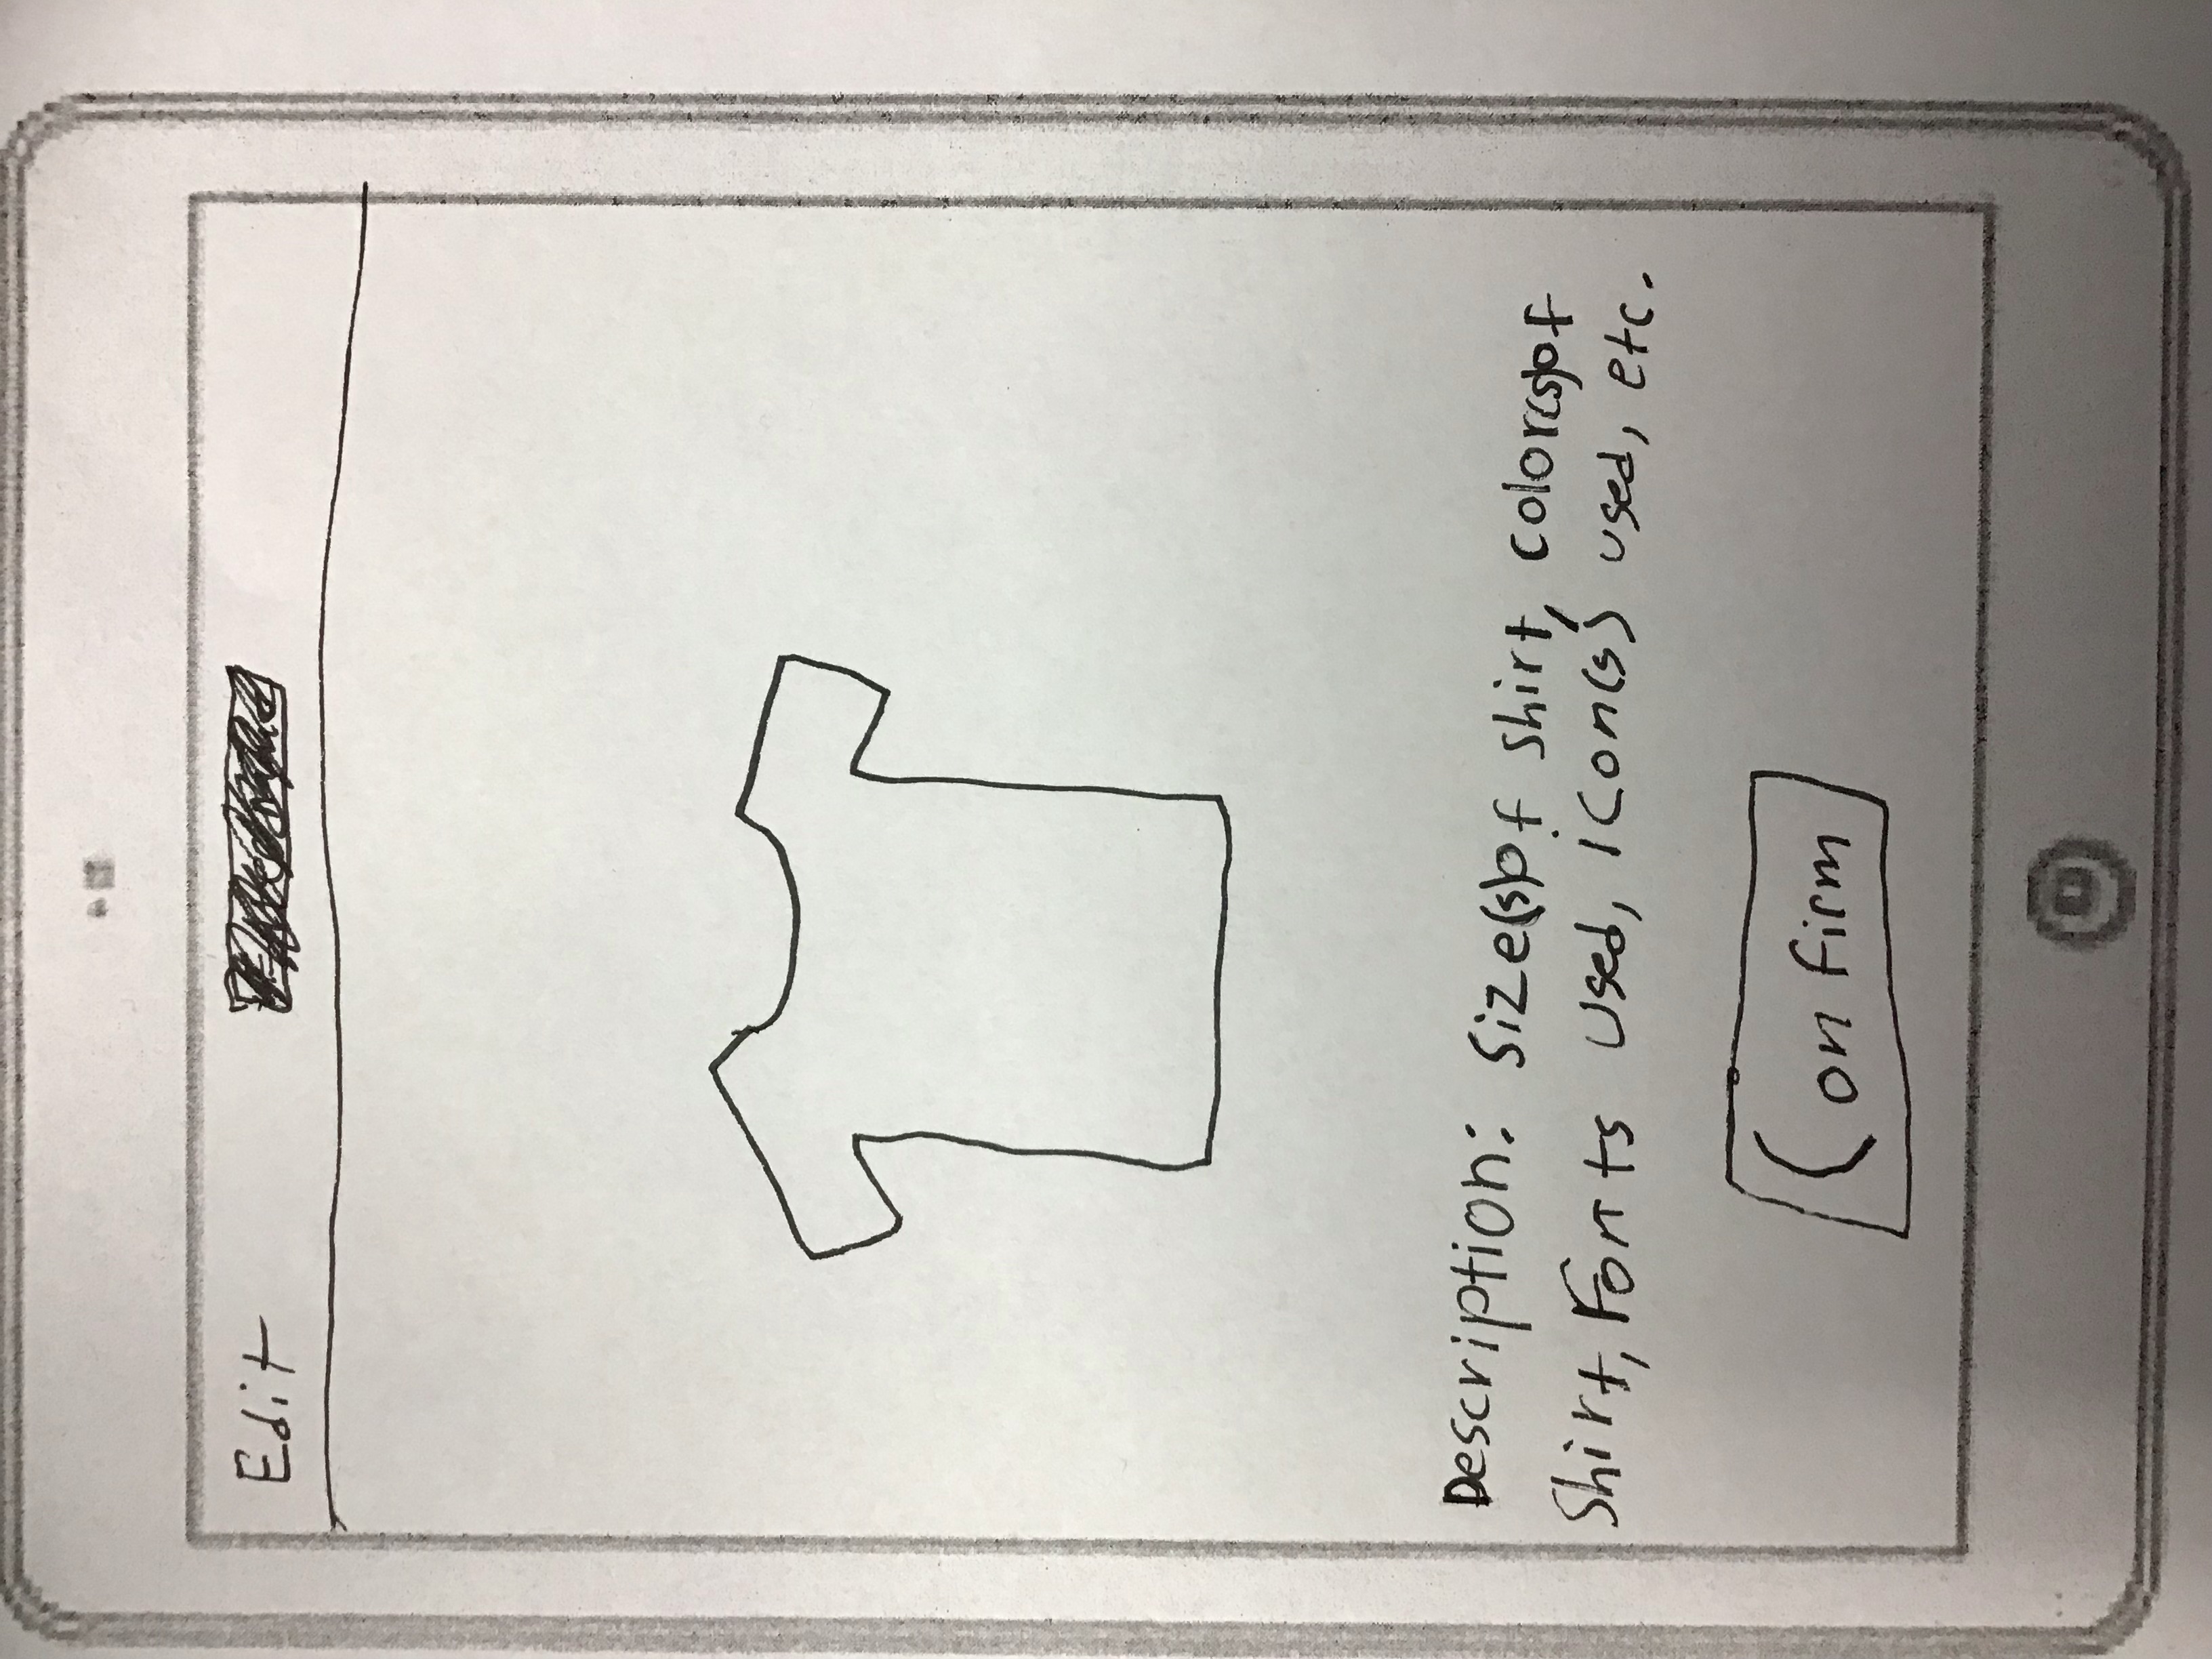 Edit
Description: Size(s) of shirt, color(s) of
Shirt, Fonts used, icon(s) used, etc.
Confirm